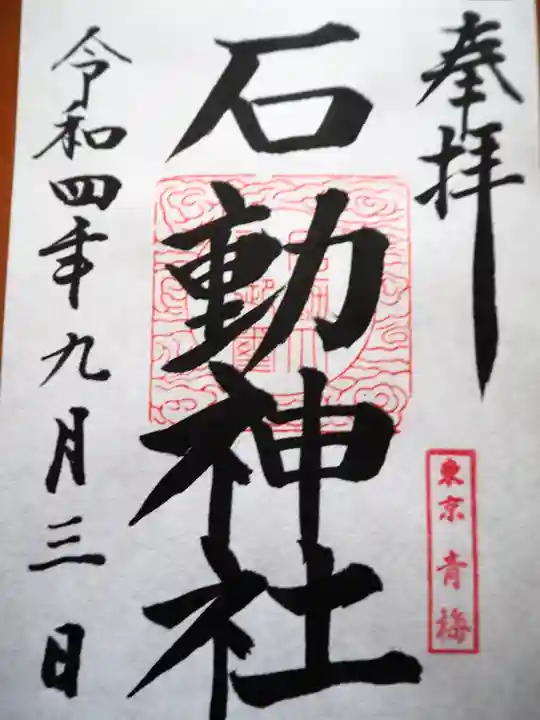 奉拝
東京 青梅
石動神社
令和四年九月三日